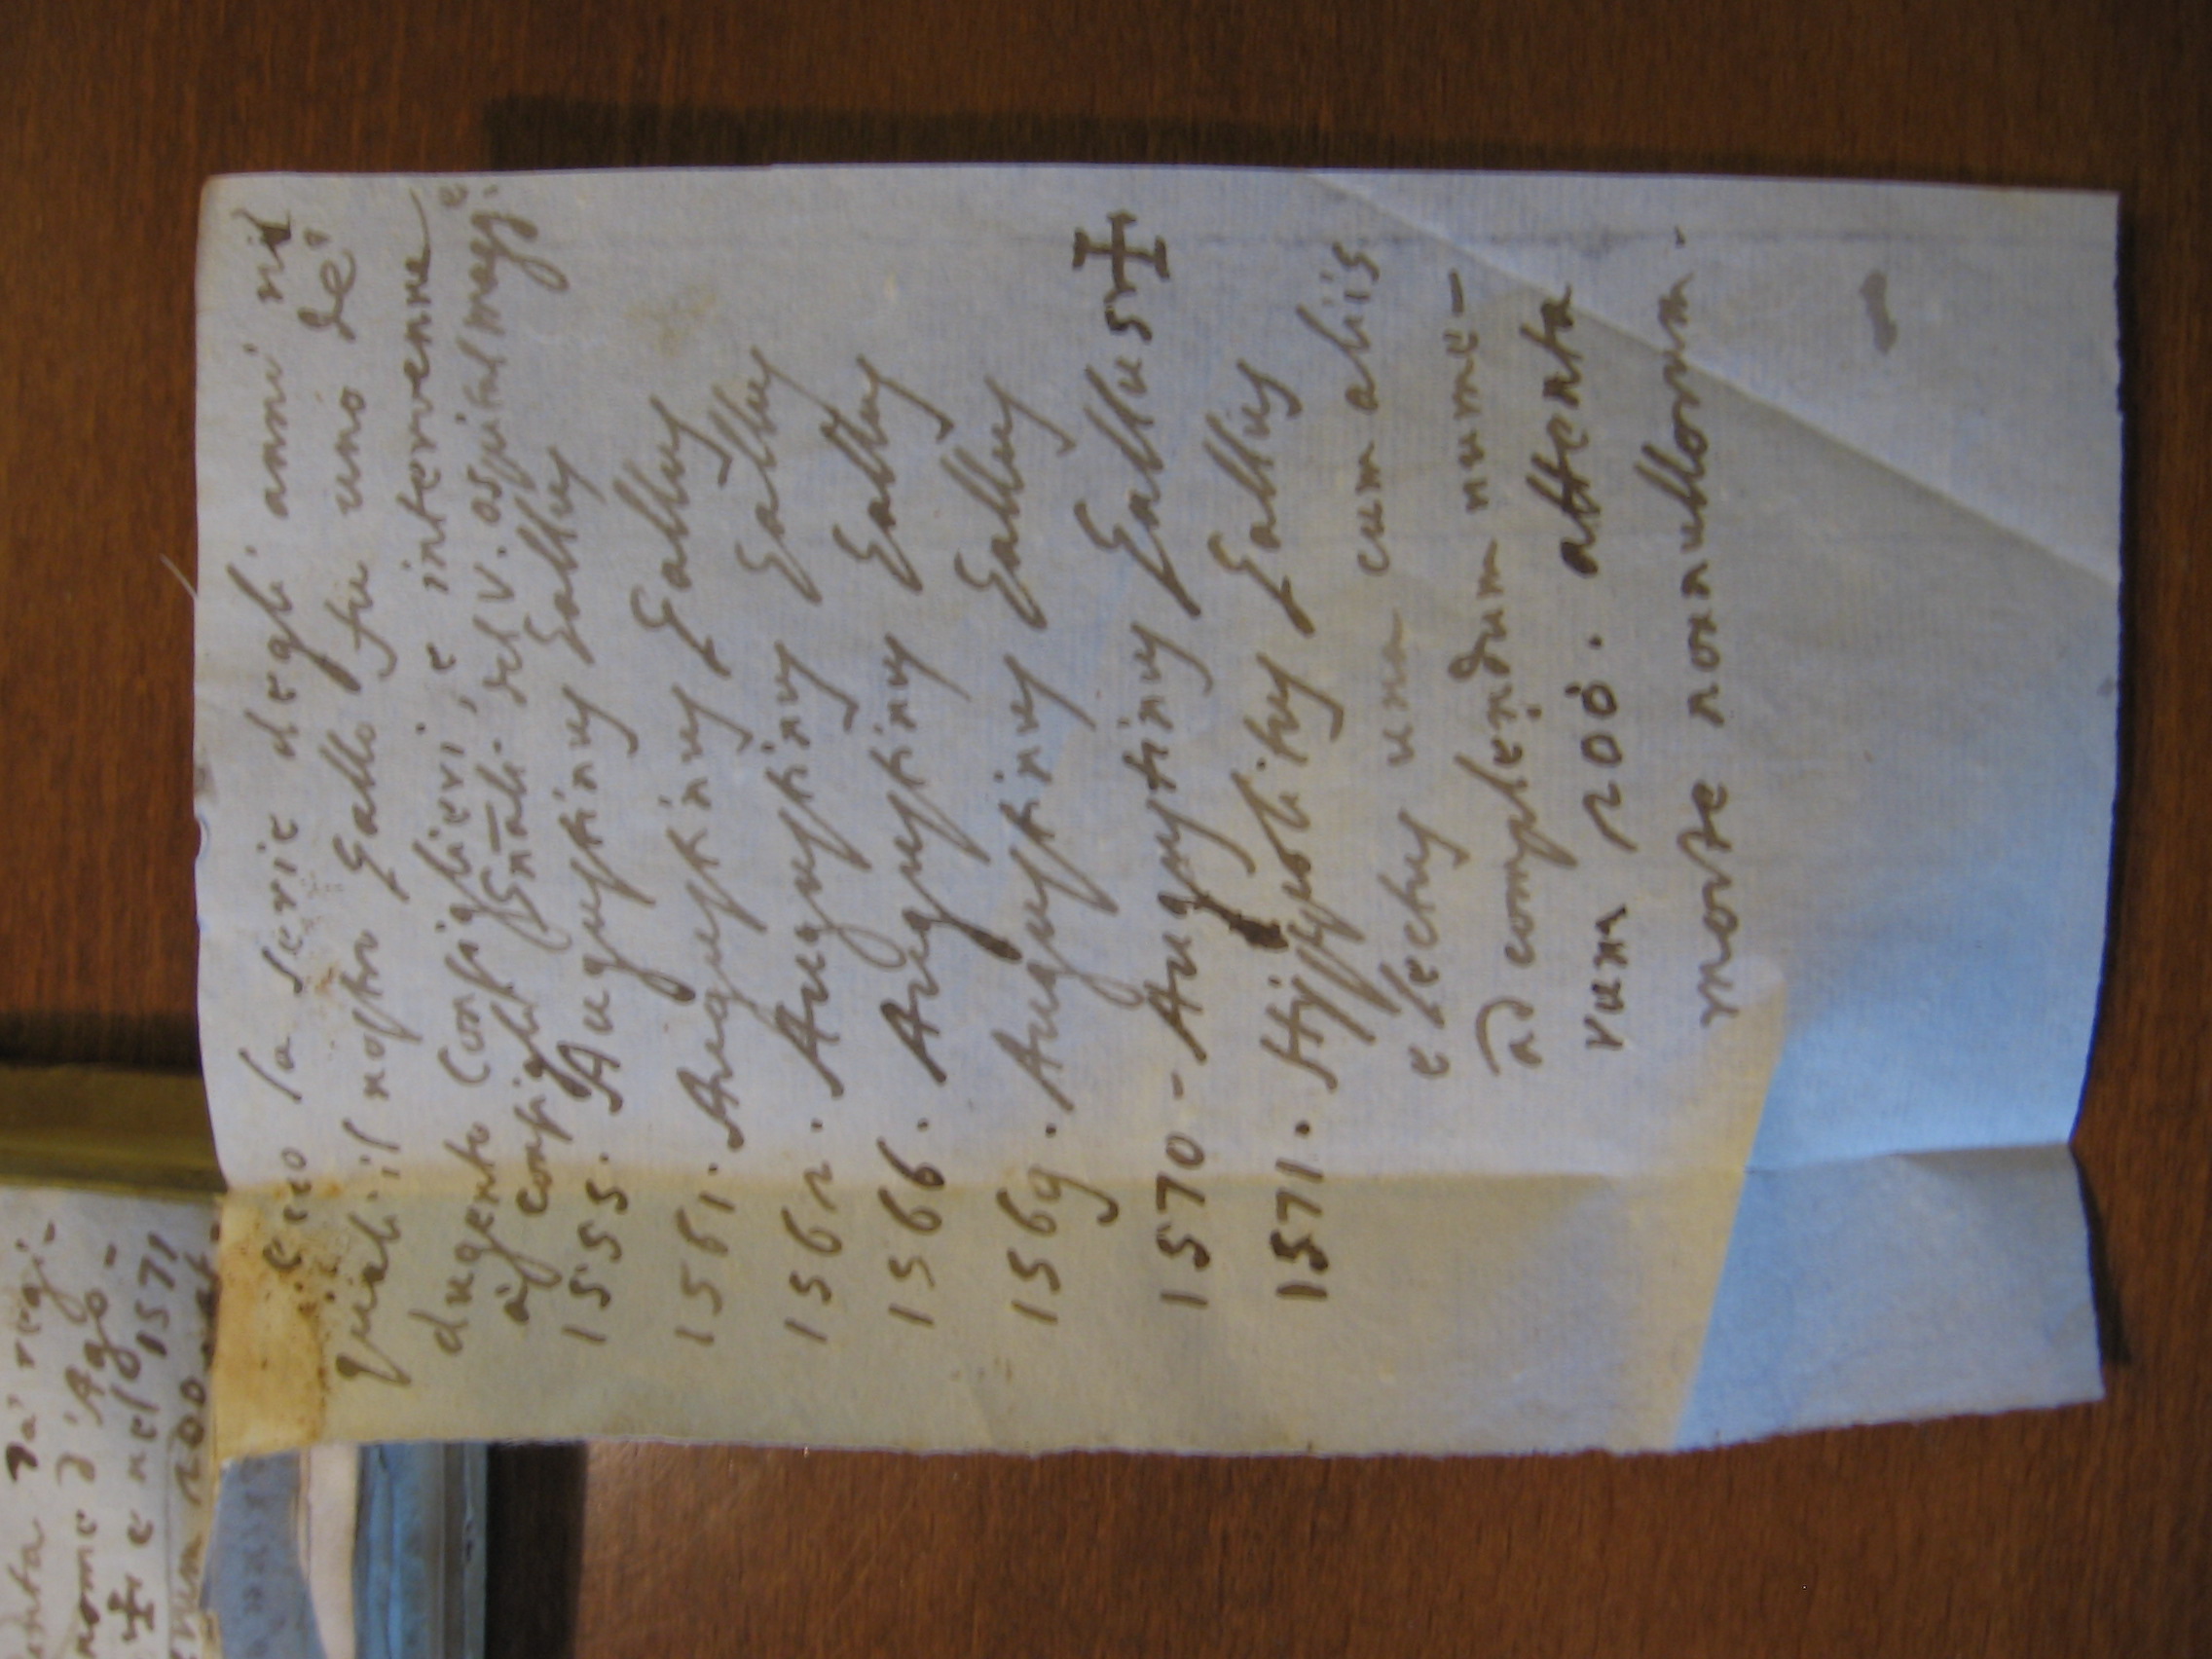 ecco la serie degli anni ne
quali il nostro Gallo fu uno de'
dugento Consiglieri, e intervenne
a' consigli Gnāli. del V. ospital magg.e
1555. Augustinus Gallus
1561. Augustinus Gallus
1562. Augustinus Gallus
1566. Augustinus Gallus
1569. Augustinus Gallus
1570 - Augustinus Gallus ✠
1571. Hippolitus Gallus
electus una cum aliis
ad complendum nume-
rum 200. attenta
morte nonnullorum.
da' regi-
nome d'Ago-
✠ e nel 1571
200